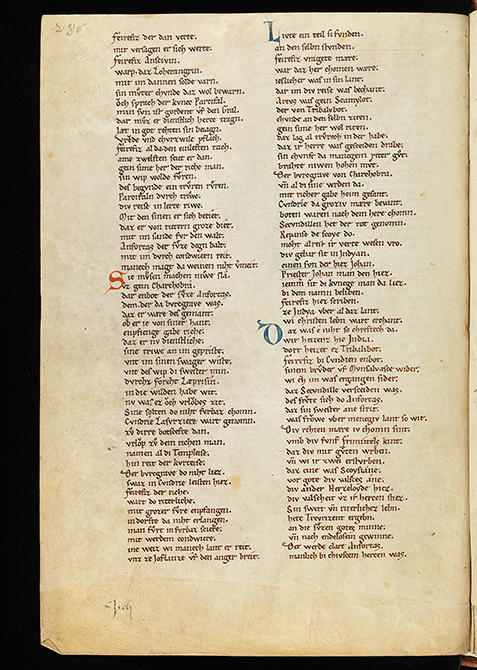 286
feirefiz der dan verte.
mit versagen er sich werte.
feirefiz Anscivin.
warp. daz Loherangrin.
mit im dannen solde varn.
sin mvter chvnde daz wol bewarn.
och sprach der kvnec Parcifal.
min svn ist gordent vf den Gral.
dar mvz er dienstlich herce tragn.
læt in got rehten sin beiagn.
vrevde vnd chvrzwile pflach.
feirefiz al da den einleften tach.
ame zwelften sciet er dan.
gein sime her der riche man.
sin wip wolde fvren.
des begunde ein trvren rvren.
Parcifaln durch triwe.
div reise in lerte riwe.
Mit den sinen er sich beriet.
daz er von rittern groze diet.
mit im sande fvr den walt.
Anfortas der svze degn balt.
mit im durch condwiern reit.
manech magt da weinen niht vmeit.
Sie mvsen machen niwe sla.
vz gein Charchobra.
dar enbot der svze Anfortas.
dem der da byrcgrave was.
daz er ware des gemant.
ob er ie von siner hant.
enpfienge gabe riche.
daz er nv dienstliche.
sine triwe an im gepriste.
vnt im sinen swager wiste.
vnt des wip di swester min.
durchz foreht Læprisin.
in die wilden habe wit.
nv was ez och vrlobes zit.
Sine solten do niht fvrbaz chomn.
Cvndrie Lasvrziere wart genomn.
zv dirre botscefte dan.
vrlop zv dem richen man.
namen al di Templeise.
hin reit der kvrteise.
Der bvrcgrave do niht liez.
swaz in Cvndrie leisten hiez.
feirefiz der riche.
wart do riterliche.
mit grozer fvre enpfangen.
in dorfte da niht erlangen.
man fvrt in fvrbaz sciere.
mit werdem condwiere.
ine weiz wi manech lant er reit.
vnz ze Joflanze vf den anger breit.
Livte ein teil si fvnden.
an den selbn stvnden.
feirefiz vragete mære.
war daz her chomen ware.
ieslicher was in sin lant.
dar im div reise was bechant.
Artvs was gein Scamylot.
der von Tribalibot.
chvnde an den selbn ziten.
gein sime her wol riten.
daz lag al trvrech in der habe.
daz ir herre was gesceiden drabe.
sin chvnft da manegem riter gvt.
brahte niwen hohen mvt.
Der bvrcgrave von Charchobra.
vn al di sine wrden da.
mit richer gabe heim gesant.
Cvndrie da groziv mære bevant.
boten waren nach dem here chomn.
Secvndillen het der tot genomn.
Repanse de scoye do.
moht alrest ir verte wesen vro.
div gebar sit in Indyan.
einen svn der hiez Johan.
Priester Johan man den hiez.
iemm sit da kvnege man da liez.
bi dem namn beliben.
feirefiz hiez scriben.
ze Indya vber al daz lant.
wi christen lebn wart erchant.
Daz was e niht so chreftech da.
wir heizenz hie India.
dort heizet ez Tribalibot.
feirefiz bi Cvndrien enbot.
sinem brvder vf Mvnsalvæsce wider.
wi ez im was ergangen sider.
daz Secvndille versceiden was.
des frevte sich do Anfortas.
daz sin swester ane strit.
was frowe vber manegiv lant so wit.
Div rehten mære iv chomn sint.
vmb div fvnf frimvtels kint.
daz div mit gvten wrben.
vn wi ir zwei ersturben.
daz eine was Scoysiane.
vor gote div valsces ane.
div ander Herzeloyde hiez.
div valscheit vz ir herzen stiez.
Sin swert vn riterlichez lebn.
hete Trevrizent ergebn.
an die svzen gotes minne.
vn nach endelosem gewinne.
Der werde clare Anfortas.
manlich bi chivscem herzen was.